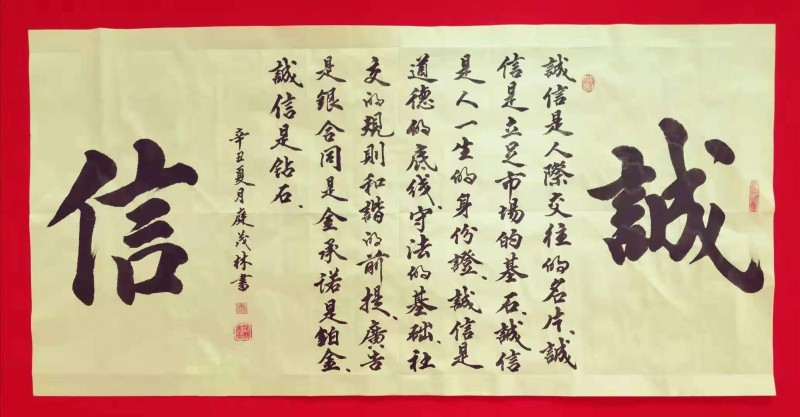 誠
誠信是人際交往的名片、誠
信是立足市场的基石、誠信
是人一生的身份證、誠信是
道德的底线、守法的基础、社
交的規則和諧的前提、廣告
是銀合同是金承諾是鉑金、
誠信是钻石、
辛丑夏月庭茂林書
信